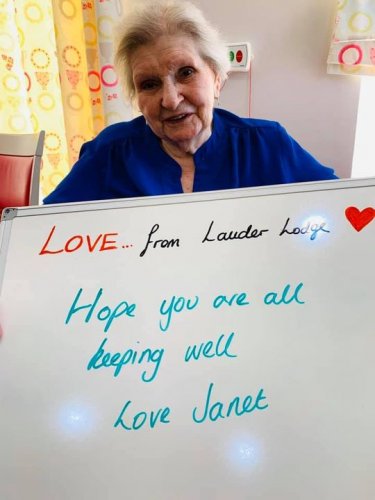 LOVE... from Lauder Lodge ❤
Hope you are all
keeping well
Love Janet